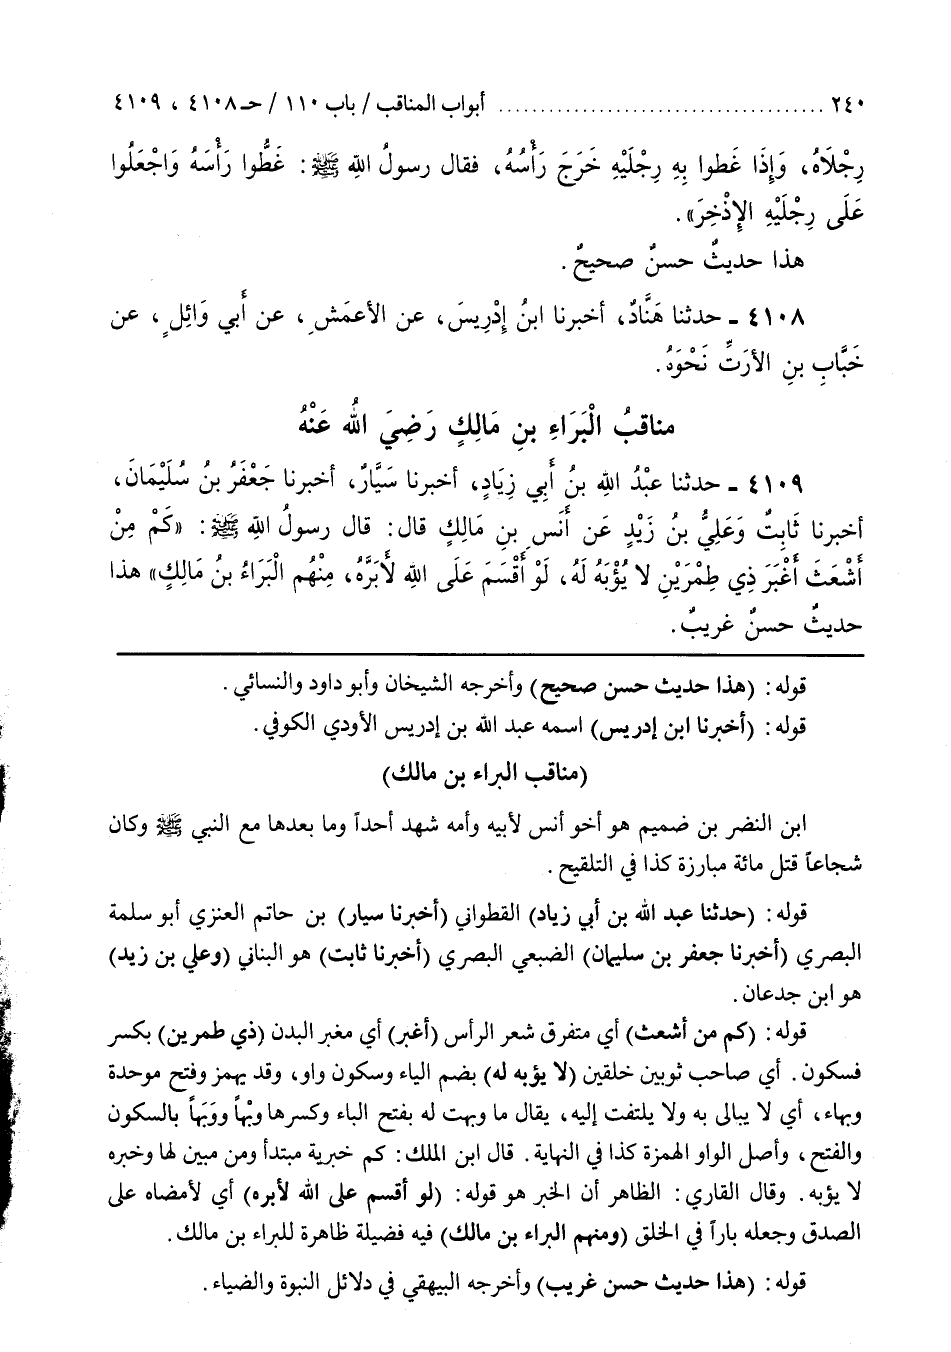 ٢٤٠ ........................................ أبواب المناقب / باب ١١٠ / حـ ٤١٠٨ ، ٤١٠٩
رِجْلَاهُ، وَإِذَا غَطوا بِهِ رِجْلَيْهِ خَرَجَ رَأْسُهُ، فقال رسولُ اللهِ ﷺ: غَطُّوا رَأْسَهُ وَاجْعَلُوا
عَلَى رِجْلَيْهِ الإِذْخِرَ».
هذا حديثٌ حسنٌ صحيحٌ.
٤١٠٨ ـ حدثنا هَنَّادٌ، أخبرنا ابنُ إِدْرِيسَ، عن الأعمَشِ، عن أَبي وَائِلٍ، عن
خَبَّابِ بنِ الأرَتِّ نَحْوَهُ.
مناقبُ الْبَرَاءِ بنِ مَالِكٍ رَضِيَ اللهُ عَنْهُ
٤١٠٩ ـ حدثنا عبْدُ اللهِ بنُ أَبِي زِيَادٍ، أخبرنا سَيَّارٌ، أخبرنا جَعْفَرُ بنُ سُلَيْمَانَ،
أخبرنا ثَابِتٌ وَعَلِيُّ بنُ زَيْدٍ عَن أَنَسِ بنِ مَالِكٍ قال: قال رسولُ اللهِ ﷺ: «كَمْ مِنْ
أَشْعَثَ أَغْبَرَ ذِي طِمْرَيْنِ لا يُؤْبَهُ لَهُ، لَوْ أَقْسَمَ عَلَى اللهِ لأَبَرَّهُ، مِنْهُم الْبَرَاءُ بنُ مَالِكٍ» هذا
حديثٌ حسنٌ غريبٌ.
قوله: (هذا حديث حسن صحيح) وأخرجه الشيخان وأبو داود والنسائي.
قوله: (أخبرنا ابن إدريس) اسمه عبد الله بن إدريس الأودي الكوفي.
(مناقب البراء بن مالك)
ابن النضر بن ضميم هو أخو أنس لأبيه وأمه شهد أحداً وما بعدها مع النبي ﷺ وكان
شجاعاً قتل مائة مبارزة كذا في التلقيح.
قوله: (حدثنا عبد الله بن أبي زياد) القطواني (أخبرنا سيار) بن حاتم العنزي أبو سلمة
البصري (أخبرنا جعفر بن سليمان) الضبعي البصري (أخبرنا ثابت) هو البناني (وعلي بن زيد)
هو ابن جدعان.
قوله: (كم من أشعث) أي متفرق شعر الرأس (أغبر) أي مغبر البدن (ذي طمرين) بكسر
فسكون. أي صاحب ثوبين خلقين (لا يؤبه له) بضم الياء وسكون واو، وقد يهمز وفتح موحدة
وبهاء، أي لا يبالى به ولا يلتفت إليه، يقال ما وبهت له بفتح الباء وكسرها وبْهاً ووبَهاً بالسكون
والفتح، وأصل الواو الهمزة كذا في النهاية. قال ابن الملك: كم خبرية مبتدأ ومن مبين لها وخبره
لا يؤبه. وقال القاري: الظاهر أن الخبر هو قوله: (لو أقسم على الله لأبره) أي لأمضاه على
الصدق وجعله باراً في الخلق (ومنهم البراء بن مالك) فيه فضيلة ظاهرة للبراء بن مالك.
قوله: (هذا حديث حسن غريب) وأخرجه البيهقي في دلائل النبوة والضياء.